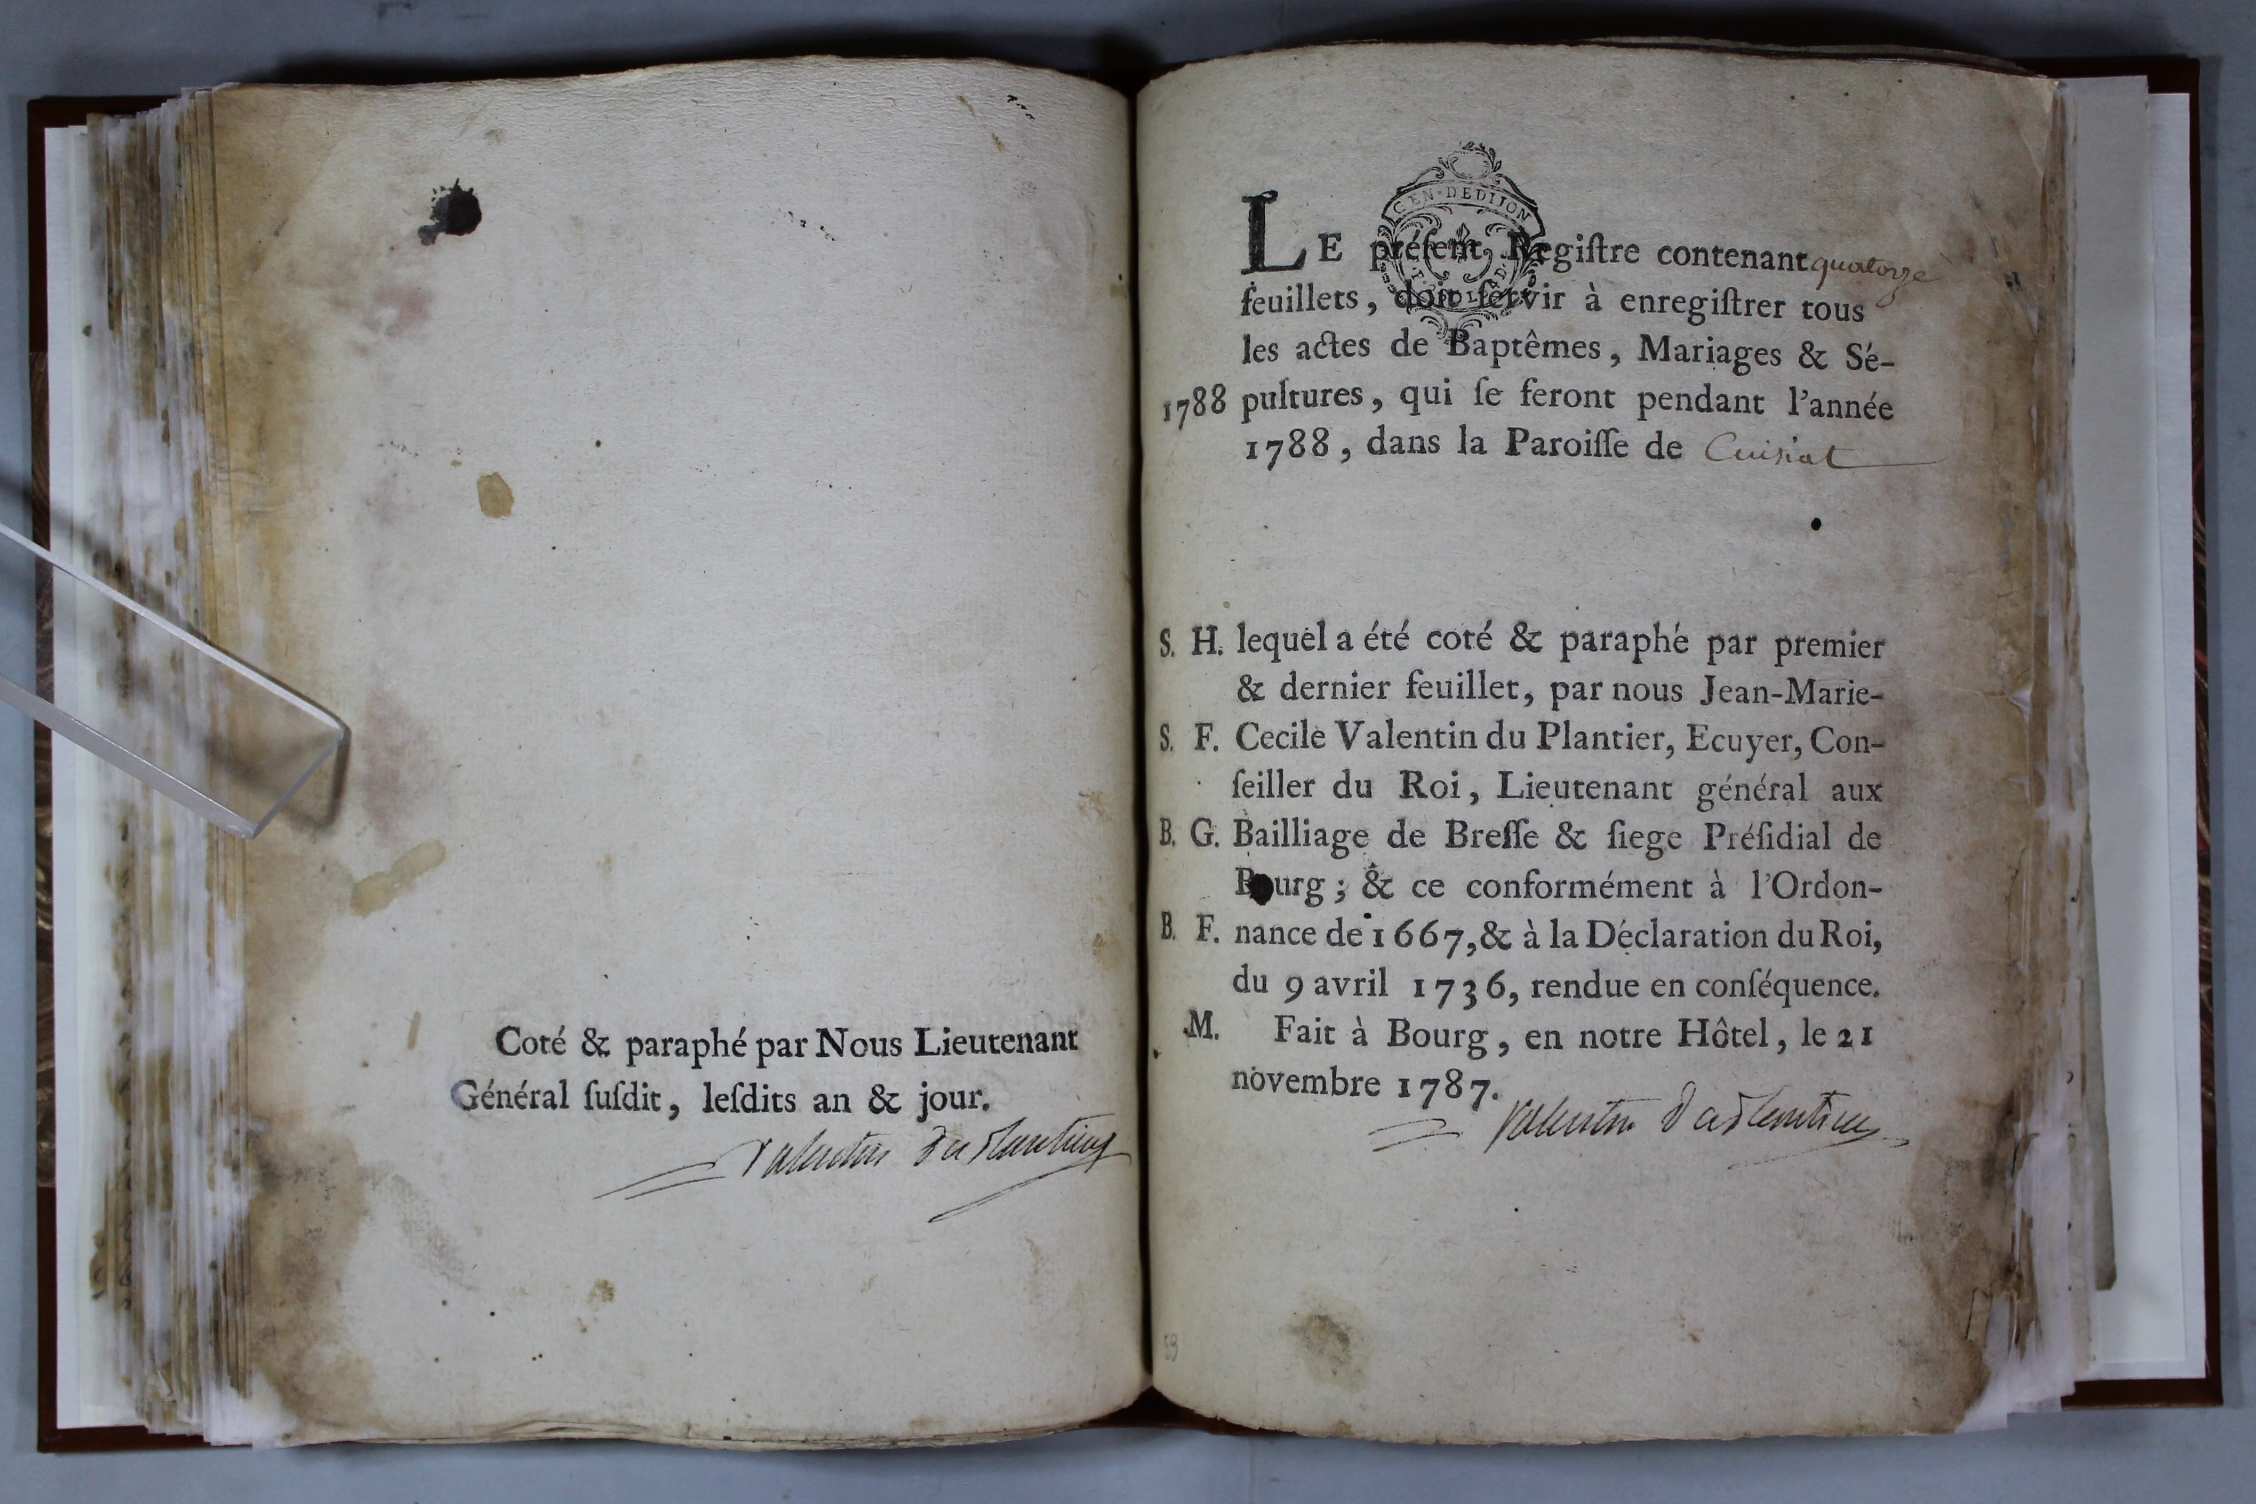 Coté & paraphé par Nous Lieutenant
Général ſuſdit, leſdits an & jour.
Valentin du Plantier
GEN·DEDIJON
LE préſent Regiſtre contenant quatorze
feuillets, doit ſervir à enregiſtrer tous
les actes de Baptêmes, Mariages & Sé-
1788 pultures, qui ſe feront pendant l'année
1788, dans la Paroiſſe de Cuisiat
S. H. lequel a été coté & paraphé par premier
& dernier feuillet, par nous Jean-Marie-
S. F. Cecile Valentin du Plantier, Ecuyer, Con-
ſeiller du Roi, Lieutenant général aux
B. G. Bailliage de Breſſe & ſiege Préſidial de
Bourg; & ce conformément à l'Ordon-
B. F. nance de 1667, & à la Déclaration du Roi,
du 9 avril 1736, rendue en conſéquence.
M. Fait à Bourg, en notre Hôtel, le 21
novembre 1787.
Valentin du Plantier